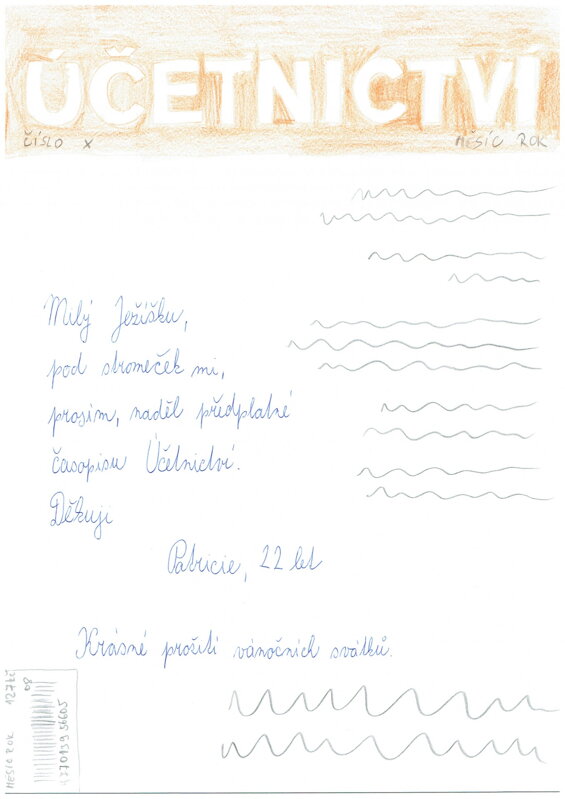 ÚČETNICTVÍ
ČÍSLO X
MĚSÍC ROK
Milý Ježíšku,
pod stromeček mi,
prosím, naděl předplatné
časopisu Účetnictví.
Děkuji
Patricie, 22 let
Krásné prožití vánočních svátků.
MĚSÍC ROK 127 Kč
08